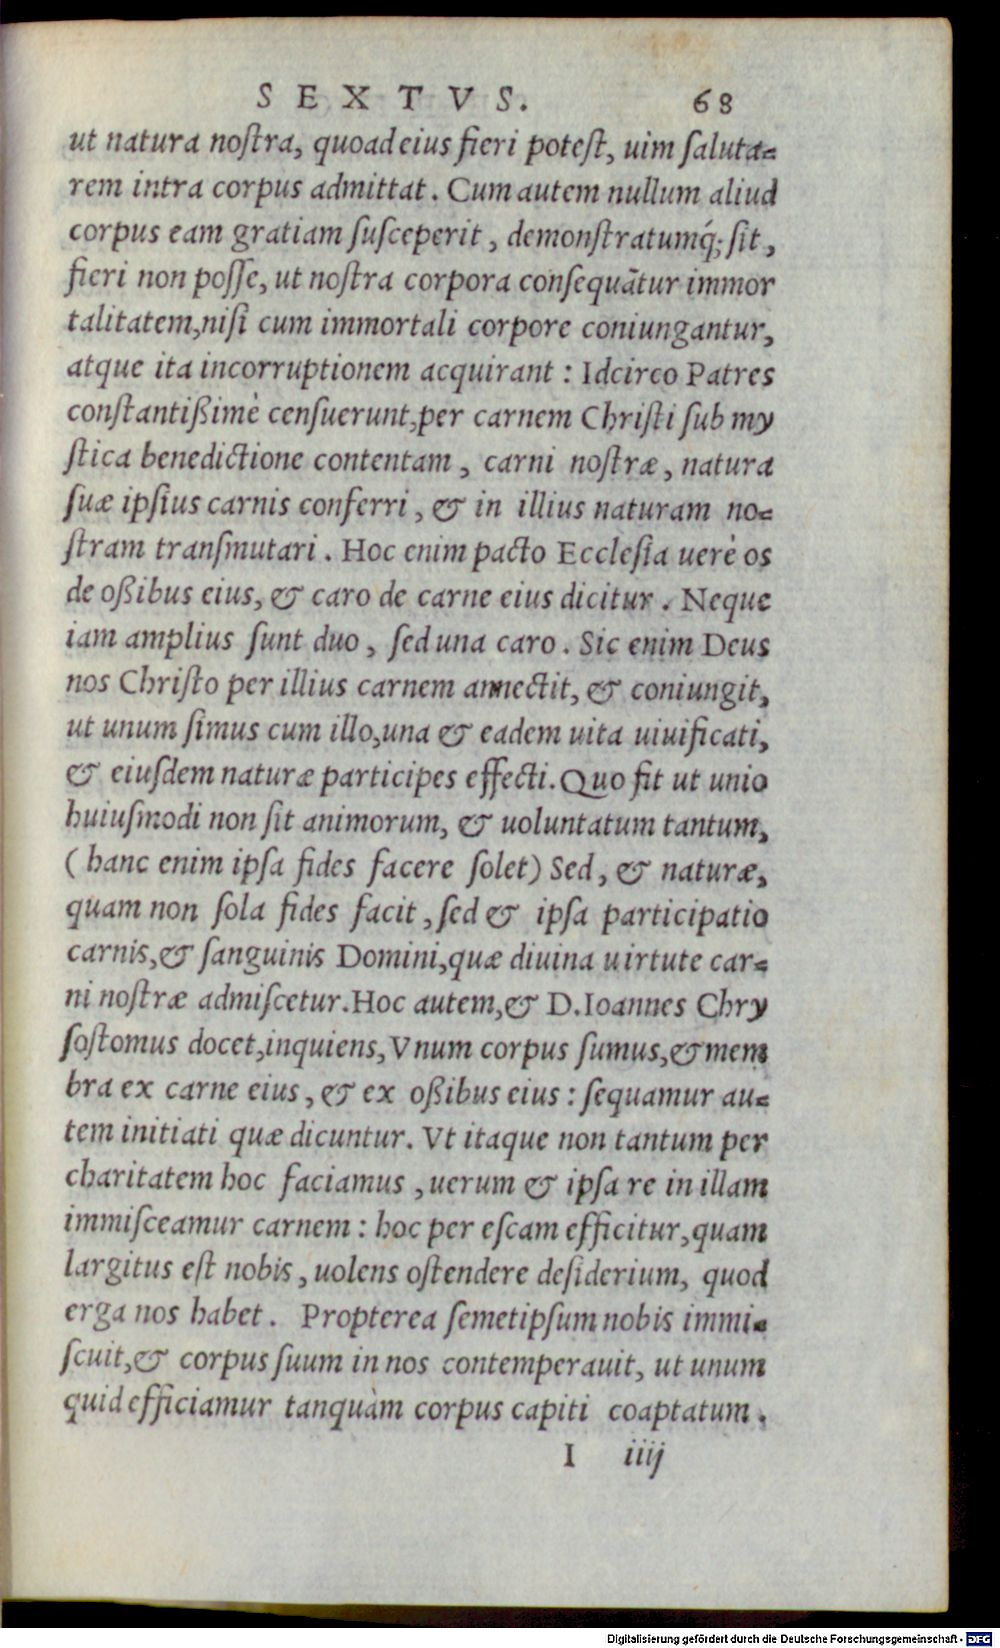 SEXTVS. 68
ut natura noſtra, quoad eius fieri poteſt, uim ſaluta=
rem intra corpus admittat. Cum autem nullum aliud
corpus eam gratiam ſuſceperit, demonſtratumq́; ſit,
fieri non poſſe, ut noſtra corpora conſequãtur immor
talitatem, niſi cum immortali corpore coniungantur,
atque ita incorruptionem acquirant: Idcirco Patres
conſtantißimè cenſuerunt, per carnem Chriſti ſub my
ſtica benedictione contentam, carni noſtræ, natura
ſuæ ipſius carnis conferri, & in illius naturam no=
ſtram tranſmutari. Hoc enim pacto Eccleſia uerè os
de oßibus eius, & caro de carne eius dicitur. Neque
iam amplius ſunt duo, ſed una caro. Sic enim Deus
nos Chriſto per illius carnem annectit, & coniungit,
ut unum ſimus cum illo, una & eadem uita uiuificati,
& eiuſdem naturæ participes effecti. Quo fit ut unio
huiuſmodi non ſit animorum, & uoluntatum tantum,
(hanc enim ipſa fides facere ſolet) Sed, & naturæ,
quam non ſola fides facit, ſed & ipſa participatio
carnis, & ſanguinis Domini, quæ diuina uirtute car=
ni noſtræ admiſcetur. Hoc autem, & D. Ioannes Chry
ſoſtomus docet, inquiens, Vnum corpus ſumus, & mem
bra ex carne eius, & ex oßibus eius: ſequamur au=
tem initiati quæ dicuntur. Vt itaque non tantum per
charitatem hoc faciamus, uerum & ipſa re in illam
immiſceamur carnem: hoc per eſcam efficitur, quam
largitus eſt nobis, uolens oſtendere deſiderium, quod
erga nos habet. Propterea ſemetipſum nobis immi=
ſcuit, & corpus ſuum in nos contemperauit, ut unum
quid efficiamur tanquàm corpus capiti coaptatum.
I iiij
Digitalisierung gefördert durch die Deutsche Forschungsgemeinschaft - DFG